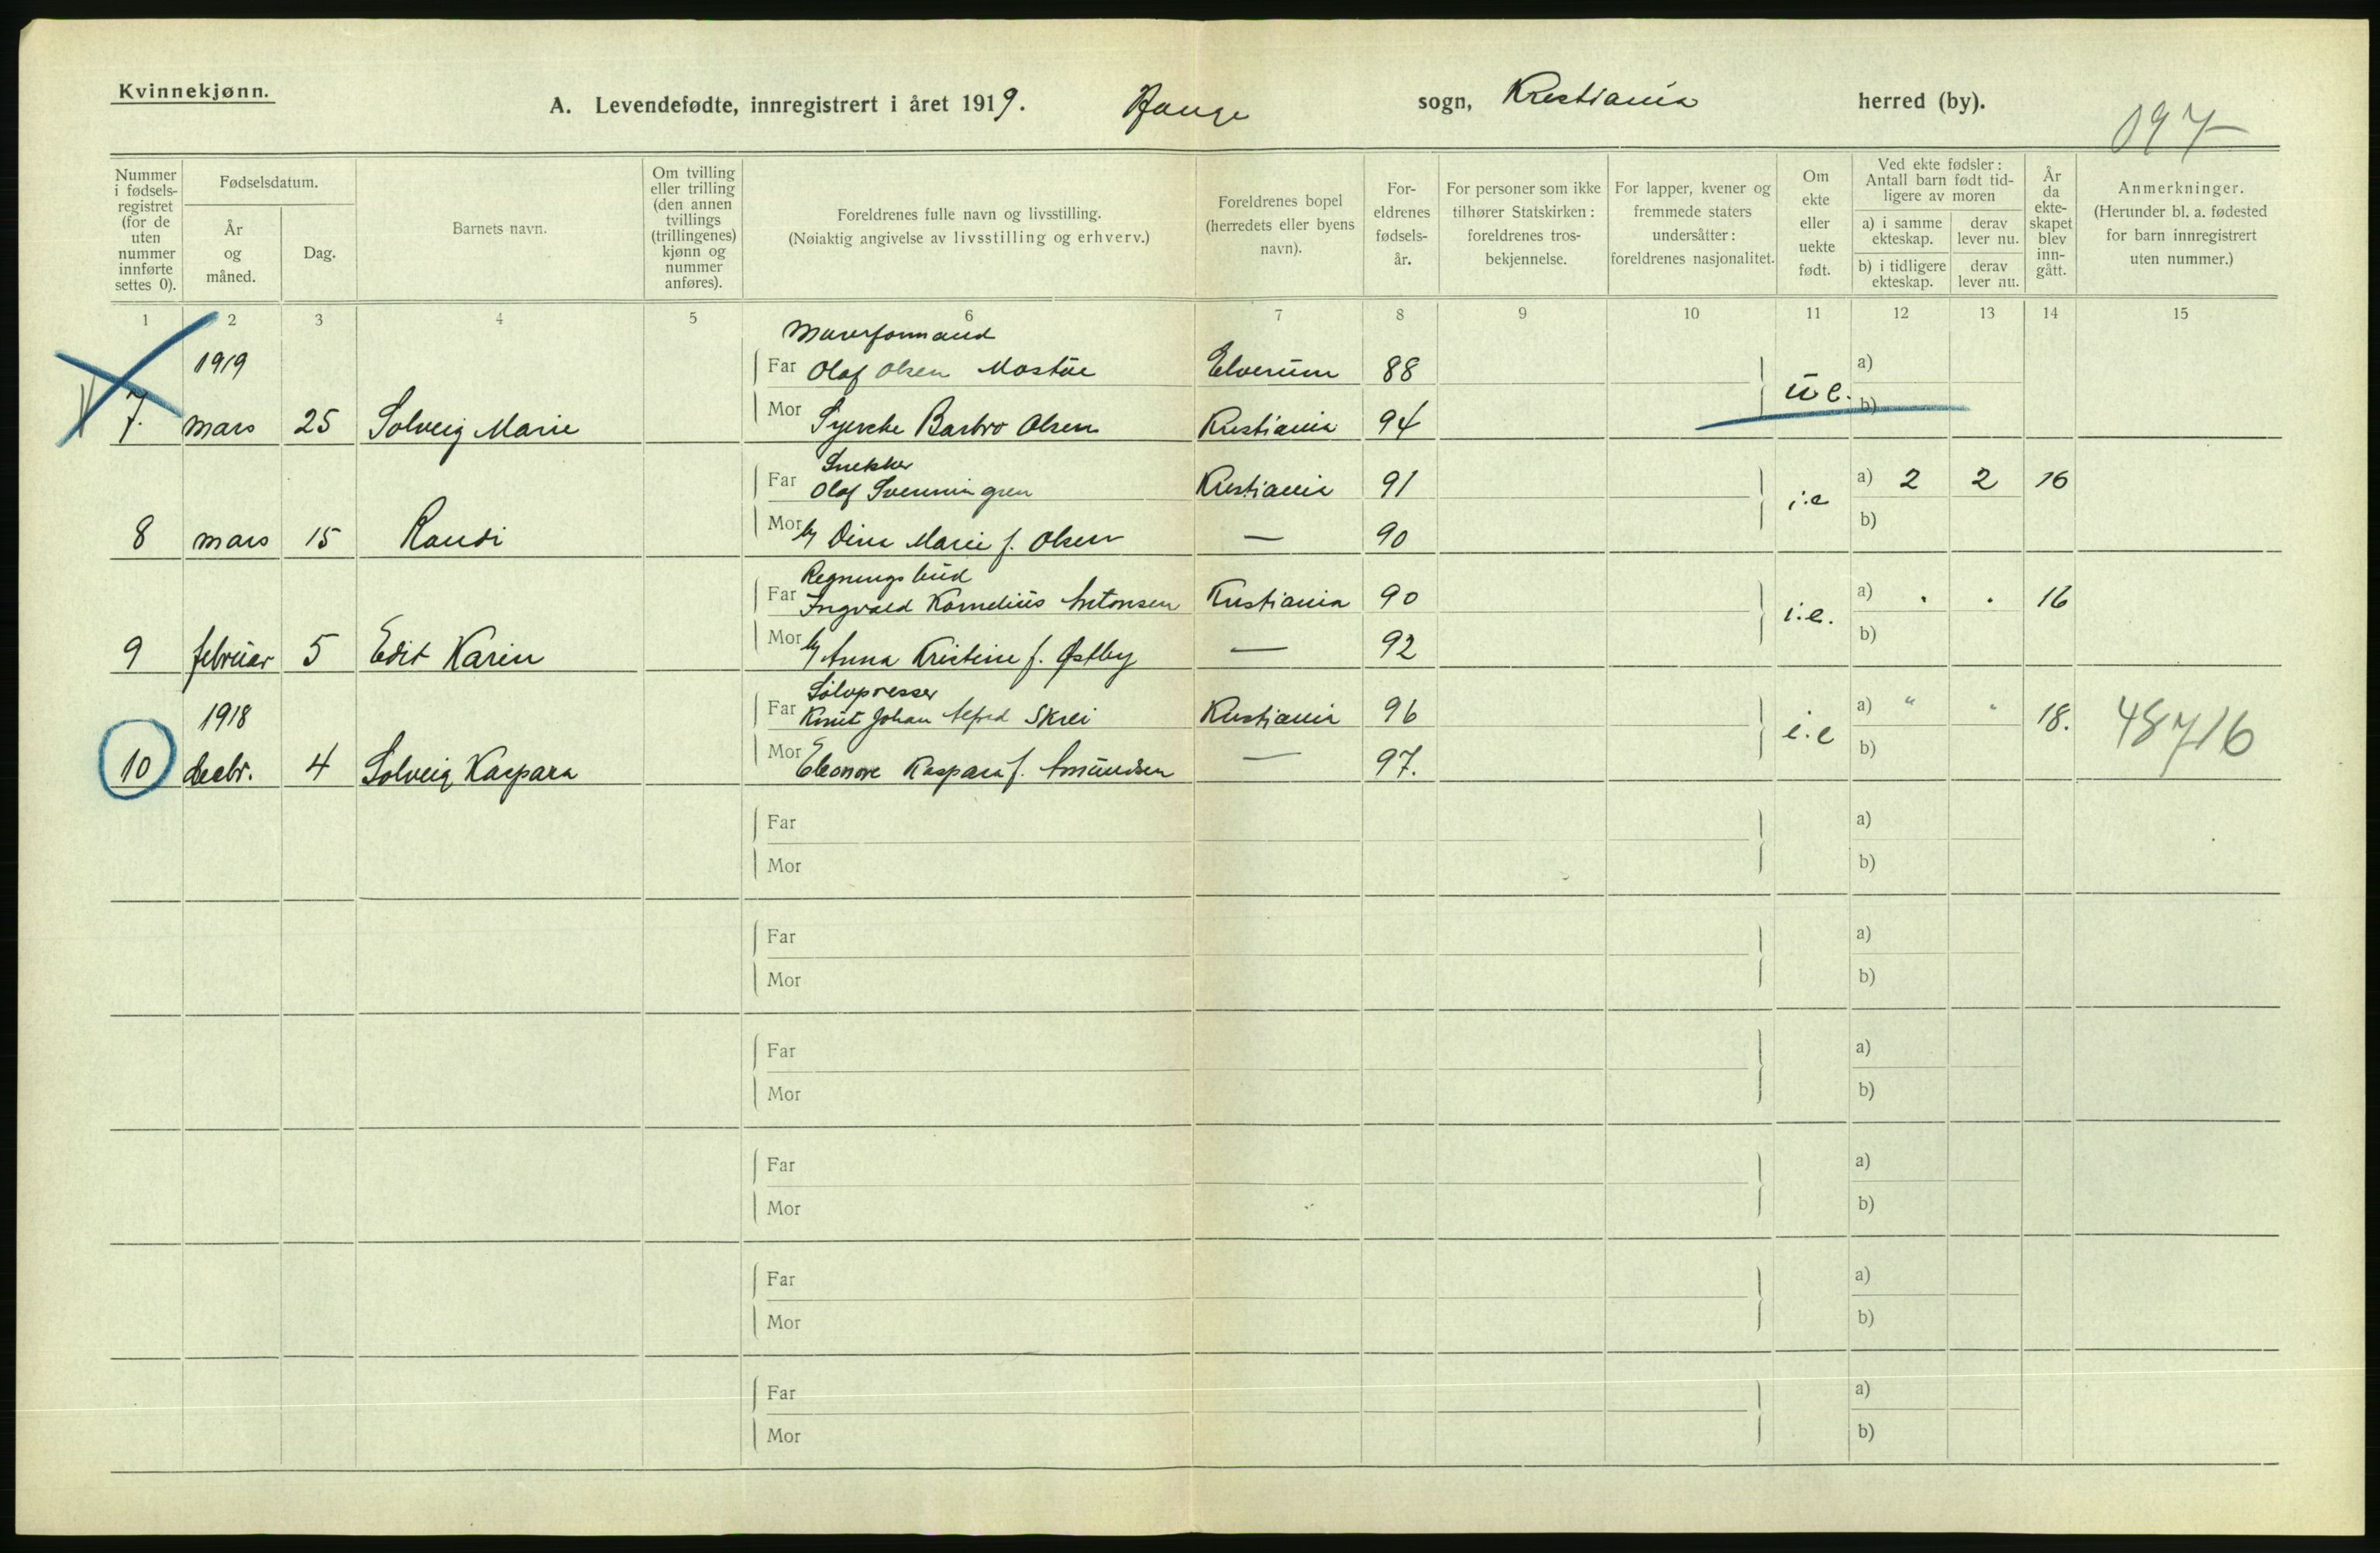 Kvinnekjønn.
A. Levendefødte, innregistrert i året 1919. Hauge sogn, Kristiania herred (by).
097
Nummer i fødsels-registret (for de uten nummer innførte settes 0).
Fødselsdatum.
År og måned.
Dag.
Barnets navn.
Om tvilling eller trilling (den annen tvillings (trillingenes) kjønn og nummer anføres).
Foreldrenes fulle navn og livsstilling.
(Nøiaktig angivelse av livsstilling og erhverv.)
Foreldrenes bopel (herredets eller byens navn).
For-eldrenes fødsels-år.
For personer som ikke tilhører Statskirken: foreldrenes tros-bekjennelse.
For lapper, kvener og fremmede staters undersåtter: foreldrenes nasjonalitet.
Om ekte eller uekte født.
Ved ekte fødsler: Antall barn født tid-ligere av moren
a) i samme ekteskap. derav lever nu.
b) i tidligere ekteskap. derav lever nu.
År da ekte-skapet blev inn-gått.
Anmerkninger.
(Herunder bl. a. fødested for barn innregistrert uten nummer.)
1 2 3 4 5 6 7 8 9 10 11 12 13 14 15
Murerformand
1919 Far Olaf Olsen Mostue Elverum 88 a)
7. mars 25 Solveig Marie Mor Barbro Olsen Kristiania 94 u e. b)
Snekker
Far Olaf Svenningsen Kristiania 91 i.e a) 2 2 16
8 mars 15 Randi Mor Dina Marie f. Olsen — 90 b)
Regningsbud
Far Ingvald Kornelius Antonsen Kristiania 90 i.e. a) . . 16
9 februar 5 Edit Karin Mor Anna Kristine f. Østby — 92 b)
Sølvpresser
1918 Far Knut Johan Alfred Skrei Kristiania 96 i.e a) " " 18. 48716
10 decbr. 4 Solveig Kaspara Mor Eleonore Kaspara f. Amundsen — 97. b)
Far a)
Mor b)
Far a)
Mor b)
Far a)
Mor b)
Far a)
Mor b)
Far a)
Mor b)
Far a)
Mor b)